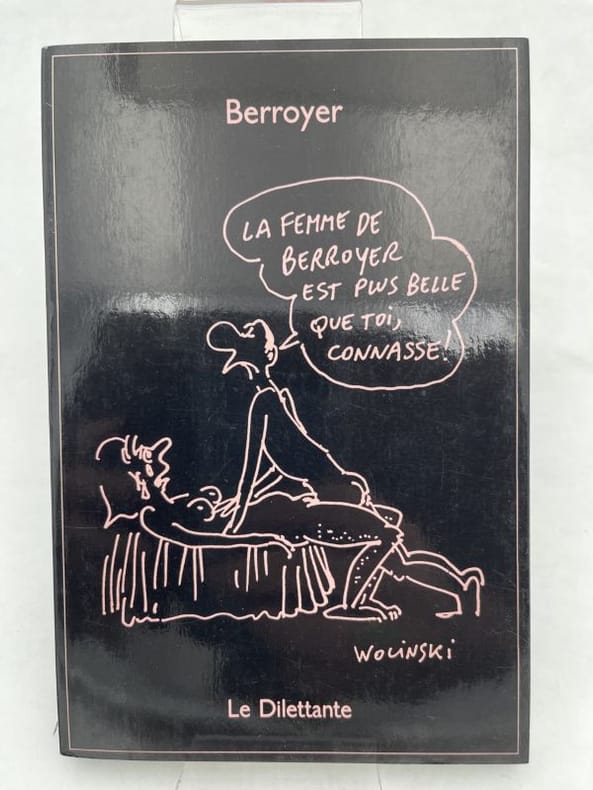 Berroyer
LA FEMME DE
BERROYER
EST PLUS BELLE
QUE TOI,
CONNASSE!
WOLINSKI
Le Dilettante